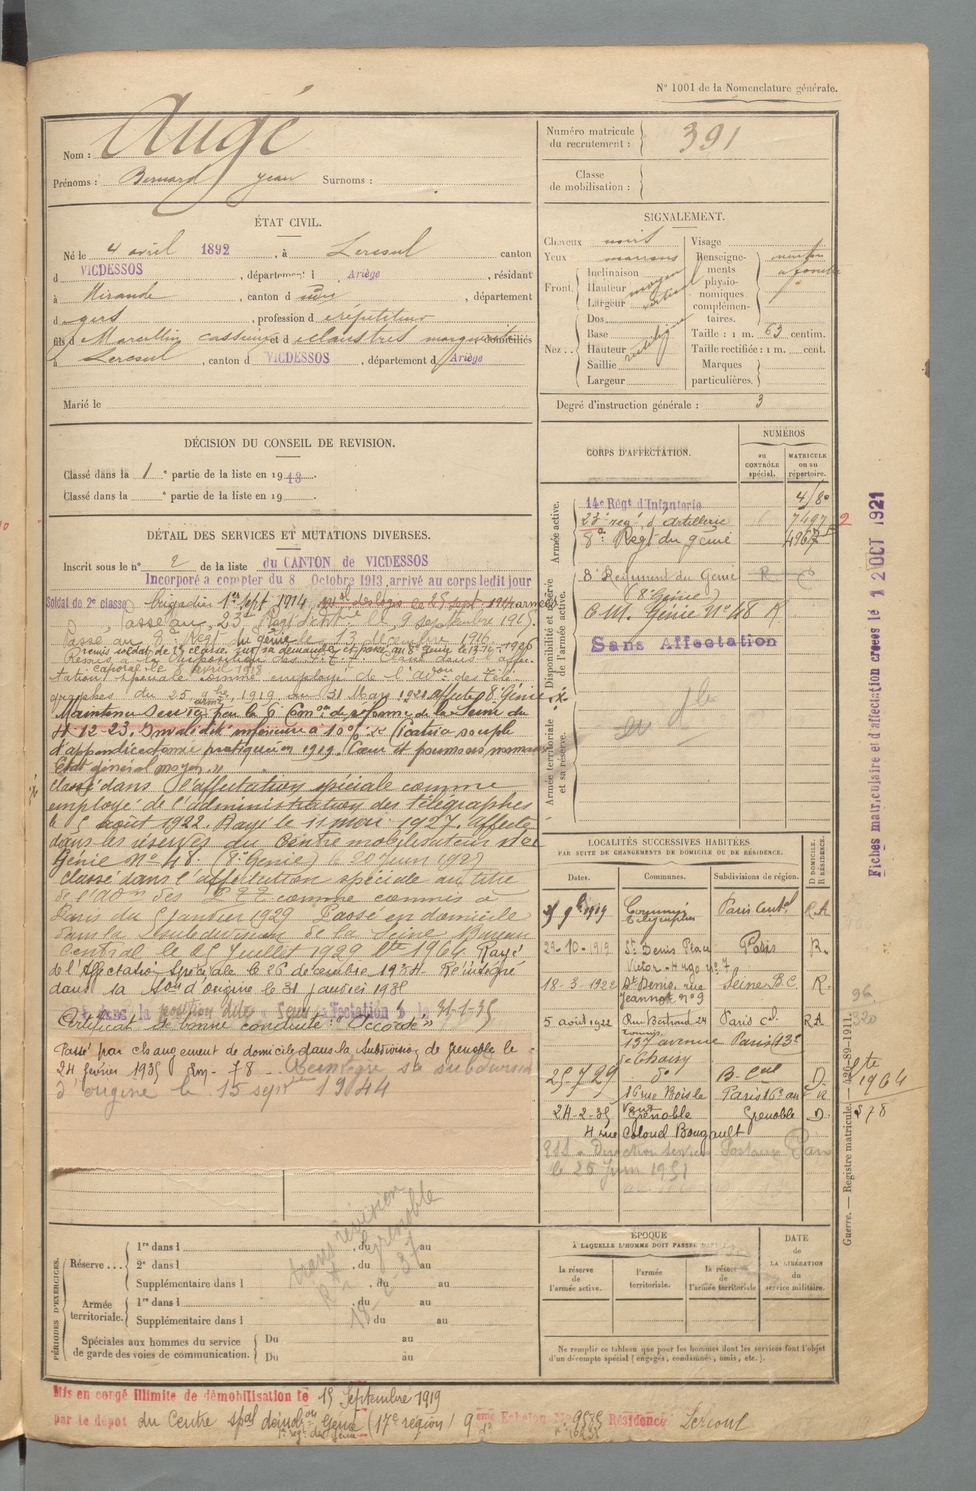 N° 1001 de la Nomenclature générale.
Nom : Augé
Prénoms : Bernard Jean Surnoms :
Numéro matricule du recrutement : 391
Classe de mobilisation :
ÉTAT CIVIL.
Né le 4 avril 1892, à Lercoul canton
d VICDESSOS, département d Ariège, résidant
à Mirande, canton d , département
d gers, profession d répétiteur
fils d Marcellin Cassien et d domiciliés
à Lercoul, canton d VICDESSOS, département d Ariège
Marié le
SIGNALEMENT.
Cheveux noirs
Yeux marrons
Front. Inclinaison moyen
Hauteur
Largeur vertical
Nez.. Dos
Base
Hauteur rectiligne
Saillie
Largeur
Visage
Renseignements physionomiques complémentaires. menton à fossette
Taille : 1 m. 63 centim.
Taille rectifiée : 1 m. cent.
Marques particulières.
Degré d'instruction générale : 3
DÉCISION DU CONSEIL DE REVISION.
Classé dans la 1e partie de la liste en 1913.
Classé dans la e partie de la liste en 19
DÉTAIL DES SERVICES ET MUTATIONS DIVERSES.
Inscrit sous le n° 2 de la liste du CANTON de VICDESSOS
Incorporé à compter du 8 Octobre 1913, arrivé au corps ledit jour
Soldat de 2e classe brigadier 1er sept 1914 25 sept. 1914
Passé au 23e Regt d'artrie le 9 septembre 1915.
Passé au 8e Regt du génie le 13 décembre 1916
Remis soldat de 2e classe sur sa demande et passé au 8e Génie le 13-12-1916
Remis à la disposition des Classé dans l'affec-
caporal le avril 1918
tation spéciale comme employé de l'adon des télé
graphes du 25 9bre 1919 au 31 Mars 1921. Affecté 8e Génie
Maintenu service armé par la 6e Comon de réforme de la Seine du
4-12-23. Invalidité inférieure à 10% Cicatrice souple
d'appendicectomie pratiquée en 1919. Cœur et poumons normaux
Etat général moyen.
Classé dans l'affectation spéciale comme
employé de l'administration des télégraphes
le 5 août 1922. Rayé le 11 mai 1927. affecté
dans les réserves du Centre mobilisateur de
Génie N° 48. (8e Génie) le 20 Juin 1927
Classé dans l'affectation spéciale au titre
de l'adon des comme commis à
Paris du 5 Janvier 1929 Passé en domicile
dans la Subdivision de la Seine Bureau
Central le 25 Juillet 1929 lte 1964 Rayé
de l'Affectation Spéciale le 26 décembre 1934. Réintégré
dans la Son d'origine le 31 janvier 1935
Classé dans la position dite "Sans affectation" le 31-1-35
Certificat de bonne conduite : "Accordé"
Passé par changement de domicile dans la subdivision de Grenoble le
24 février 1935 Em - 78 - Réintègre sa subdivision
d'origine le 15 septbre 1944
CORPS D'AFFECTATION.
NUMÉROS
au CONTRÔLE spécial.
MATRICULE ou au répertoire.
Armée active.
14e Régt d'Infanterie 4180
23e regt d'artillerie 7497
8e Regt du génie 4967
Disponibilité et réserve de l'armée active.
8e Régiment du Génie
(8e Génie)
C.M. Génie N° 48 R
Sans Affectation
Armée territoriale et sa réserve.
LOCALITÉS SUCCESSIVES HABITÉES
PAR SUITE DE CHANGEMENTS DE DOMICILE OU DE RÉSIDENCE.
Dates. Communes. Subdivisions de région. D DOMICILE. R RÉSIDENCE.
9bre 1919 Commis Télégraphes Paris Central R.A
29-10-1919 St Denis Place Victor-Hugo n° 7 Paris R.
18-3-1922 St Denis, rue Jeannot n° 9 Seine B.C. R.
5 août 1922 Rue Bertrand 24 Paris Cl. R.A
137 avenue de Choisy Paris 13e
25-7-29 do B-Cal D.
16 rue Bois le Vent Paris 16e
24-2-35 Grenoble Grenoble D.
4 rue Colonel Bougault
à Direction services Postaux Paris
le 26 Juin 1951
PÉRIODES D'EXERCICES.
Réserve... 1re dans l , du au
2e dans l , du au
Supplémentaire dans l , du au
Armée territoriale. 1re dans l , du au
Supplémentaire dans l du au
Spéciales aux hommes du service de garde des voies de communication. Du au
Du au
trans révision
Grenoble
ÉPOQUE
À LAQUELLE L'HOMME DOIT PASSER DANS
la réserve de l'armée active.
l'armée territoriale.
la réserve de l'armée territoriale
DATE de LA LIBÉRATION du service militaire.
Ne remplir ce tableau que pour les hommes dont les services font l'objet d'un décompte spécial (engagés, condamnés, omis, etc.).
Mis en congé illimité de démobilisation le 15 Septembre 1919
par le dépôt du Centre spal démob on Génie (17e région) 9eme Echelon N° 9575 Résidence Lercoul
Fiches matriculaire et d'affectation créées le 12 OCT 1921
Guerre. — Registre matricule. — 426-89-1911.
96
320
lte 1964
578